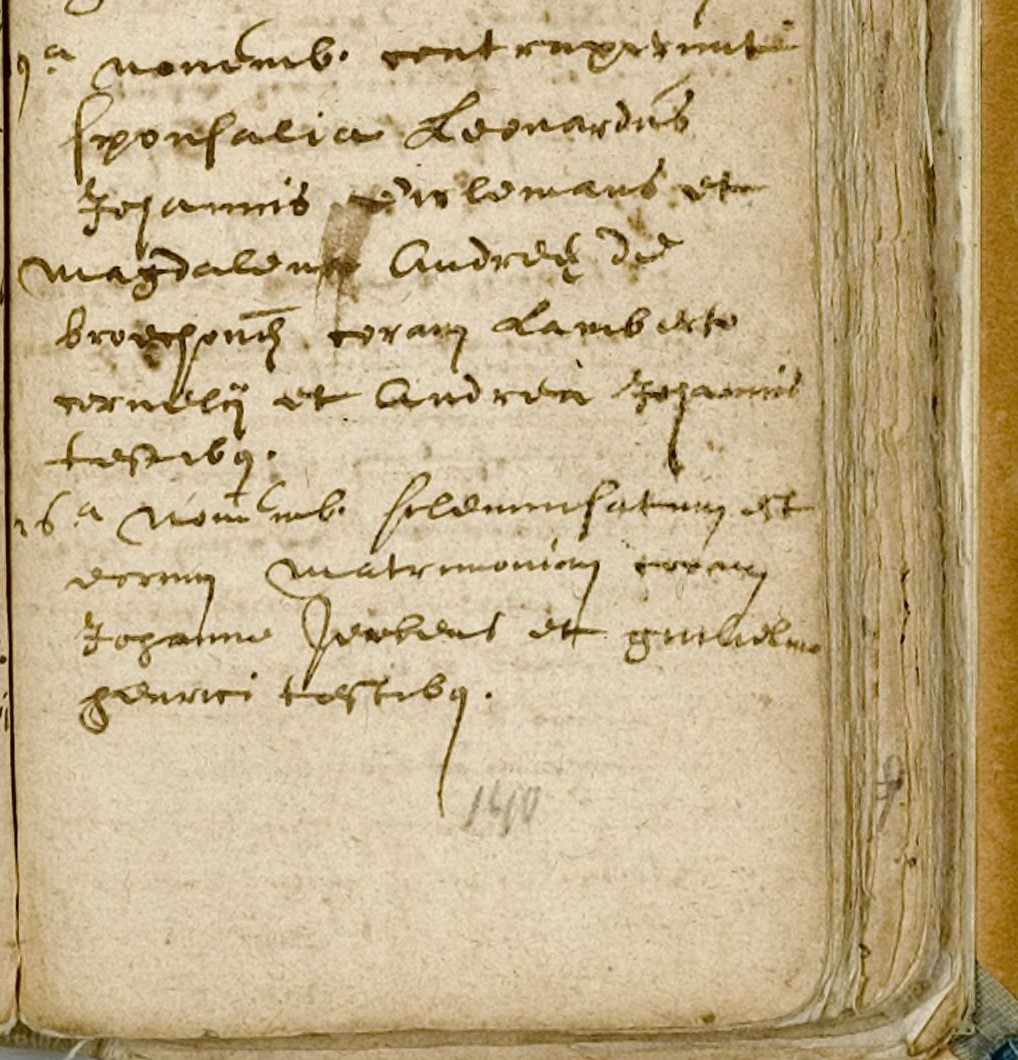 1ª Novemb. contraxerunt
sponsalia Leonardus
Johannis Dielemans et
Magdalena Andreę de
coram Lamberto
Cornelij et Andrea Johannis
testibq.
26ª Novemb. solemnisatum est
eorum matrimonium coram
Johanne et Guilielmo
Henrici testibq.
140